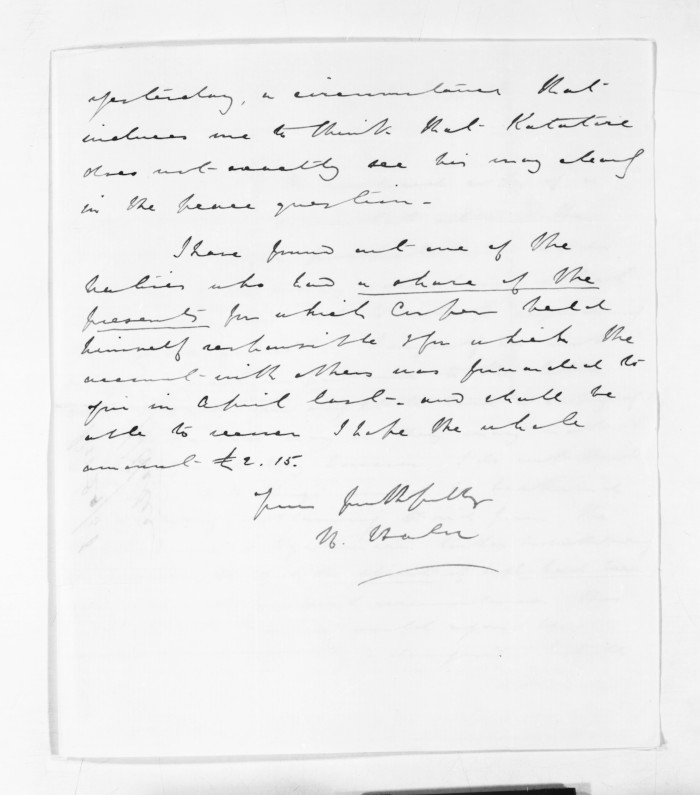 yesterday, a circumstance that
induces me to think that Katatore
does not exactly see his way clearly
in the peace question –
I have found out one of the
Natives who had a share of the
presents for which Cooper held
himself responsible & for which the
account with others was forwarded to
you in April last – and shall be
able to recover I hope the whole
amount £2. 15.
Yours faithfully
H. Halse